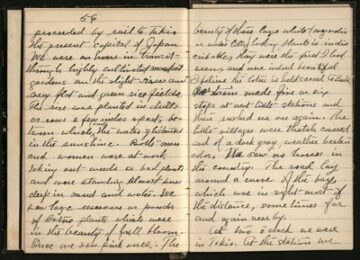 56
proceeded by rail to Tokio
the present capital of Japan.
We were an hour in transit
through highly cultivated market
gardens on the slight rises and
very flat and green rice fields.
The rice was planted in drills
or rows a few inches apart, be-
tween which, the water glistened
in the sunshine. Both men
and women were at work
taking out weeds or bad plants
and were standing almost knee
deep in mud and water. We
saw large reservoirs or ponds
of Lotus plants which were
in the beauty of full bloom.
Once we saw pink ones. The
beauty of these large white
or water lily looking plants is inde-
scribable, they were the first I had
seen and were indeed beautiful
I believe the lotus is held sacred to Buddha
We been made five or six
stops at neat little stations and
then rushed on once again. The
little villages were thatch covered
and of a dark gray, weather beaten
color. We saw no horses in
the country. The road lay
around a curve of the bay,
which was in sight most of
the distance, sometimes far
and again near by.
At two o'clock we were
in Tokio. At the station we